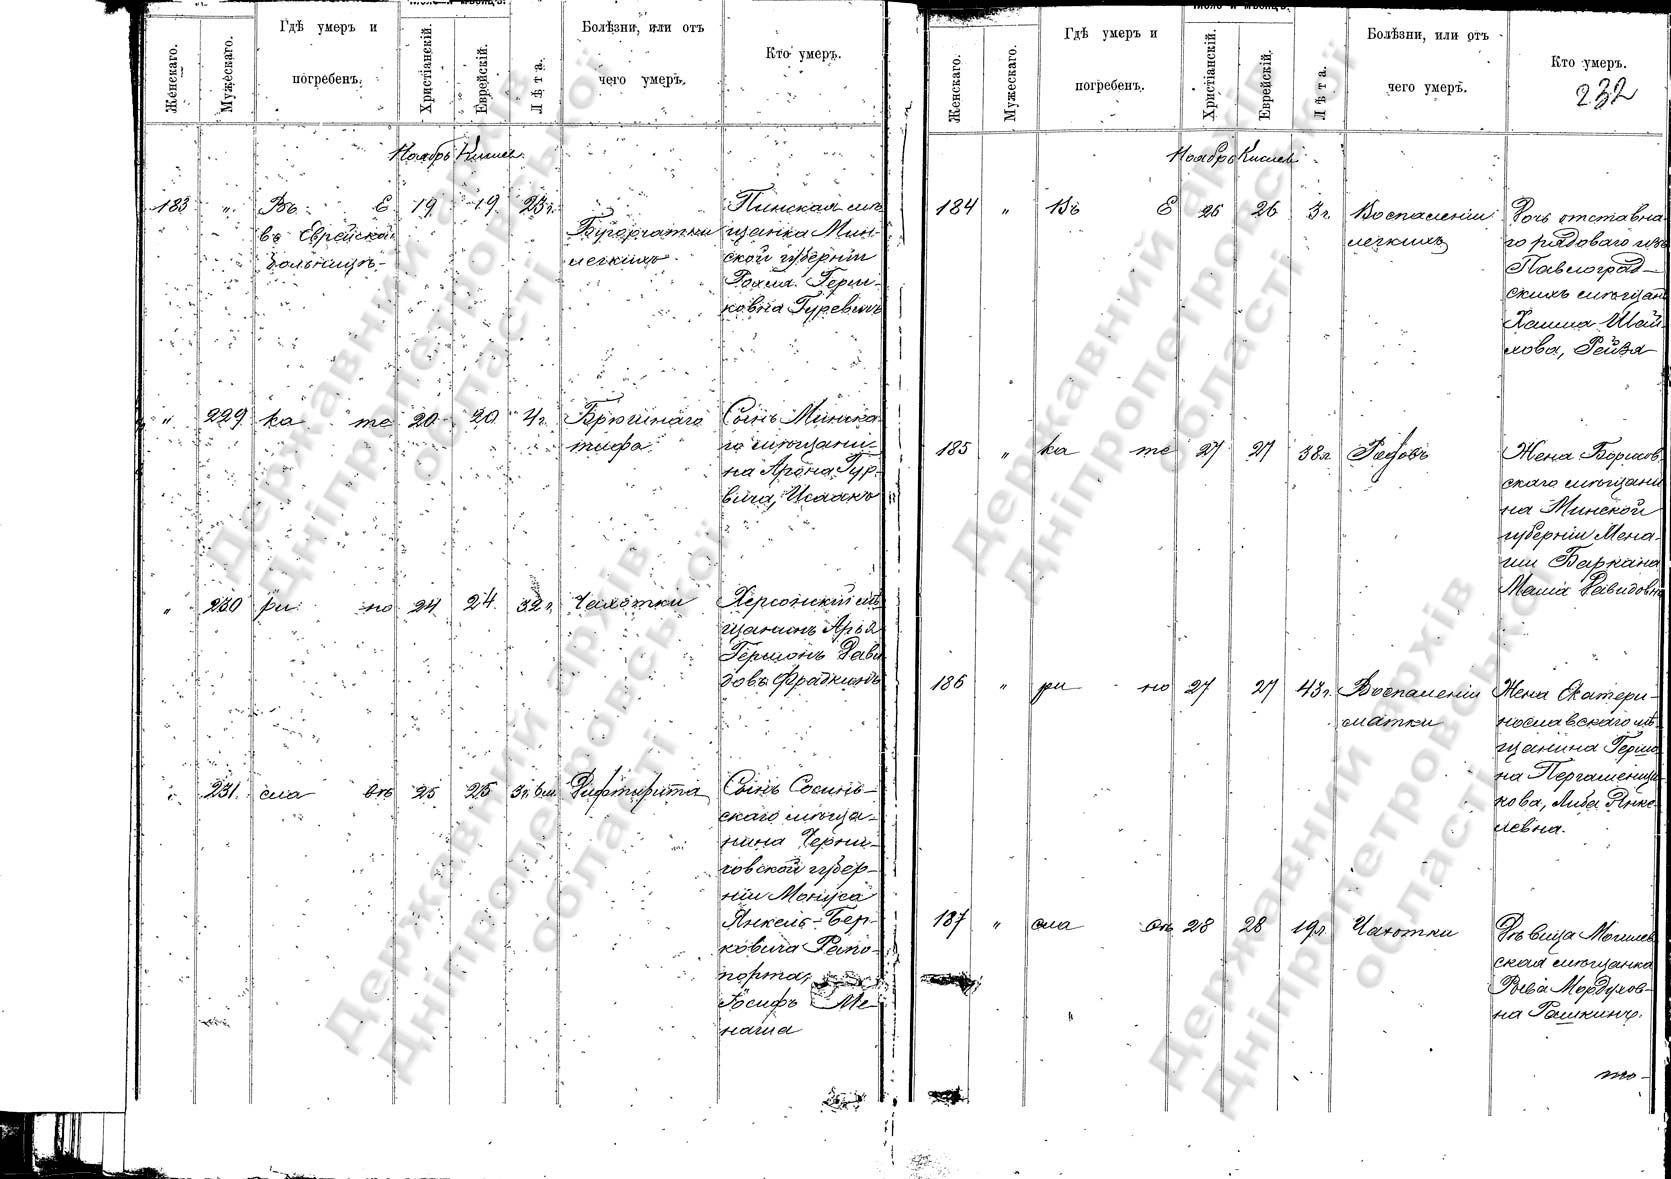 Женскаго.
Мужескаго.
Гдѣ умеръ и
погребенъ.
Христіанскій.
Еврейскій.
Лѣта.
Болѣзни, или отъ
чего умеръ.
Кто умеръ.
Ноябрь Кислев
183 " Въ Е 19 19 23 г. Бугорчатки легкихъ
въ Еврейской
больницѣ
Пинская мѣ
щанка Мин-
ской губерніи
Рохля Герш-
ковна Гуревичъ
" 229 ка те 20 20 4 г. Брюшнаго
тифа
Сынъ Минска
го мѣщани-
на Арона Гур-
вича, Исаакъ
" 230 ри но 24 24 32 г. Чахотки
Херсонскій мѣ
щанинъ Арья
Гершонъ Дави
довъ Фрадкинъ
" 231 сла въ 25 25 3 г. 6 м. Дифтерита
Сынъ Сосниц-
скаго мѣща-
нина Черни-
говской губер-
ніи Мануса
Янкель-Бер-
ковича Рапо-
порта,
Іосифъ Ме-
наша
Женскаго.
Мужескаго.
Гдѣ умеръ и
погребенъ.
Христіанскій.
Еврейскій.
Лѣта.
Болѣзни, или отъ
чего умеръ.
Кто умеръ.
232
Ноябрь Кислев
184 " Въ Е 26 26 3 г. Воспаленіи
легкихъ
Дочь отставна
го рядоваго изъ
Павлоград-
скихъ мѣщанъ
Хаима
Рейзя
185 " ка те 27 27 38 л. Родовъ
Жена Борисов
скаго мѣщани
на Минской
губерніи Мена-
ши Баркана
Маша Давидовна
186 " ри но 27 27 43 г. Воспаленіи
матки
Жена Екатери-
нославскаго мѣ
щанина Гершо
на Пергаменщи
кова, Либа Янке
левна.
187 " сла въ 28 28 19 л. Чахотки
Дѣвица Могилев
ская мѣщанка
Двейра Мордухов-
на Рашкинъ.
"
то-
Державний архів
Дніпропетровської
області